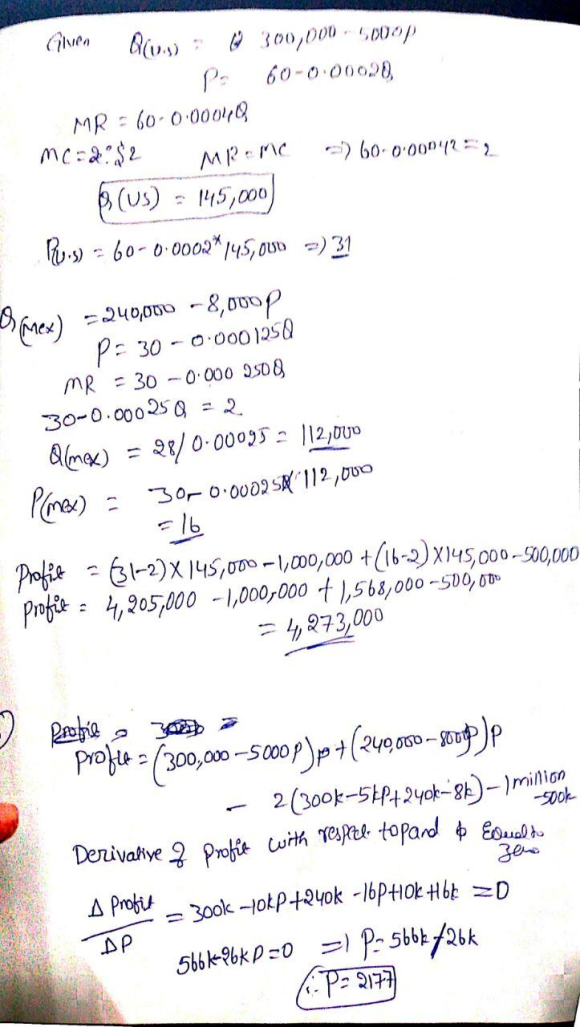 Given Q(U.S) = 300,000 - 5000p
P = 60-0.0002Q
MR = 60-0.0004Q
MC = 2: $2 MR = MC => 60-0.00042 = 2
Q(US) = 145,000
P(U.S) = 60-0.0002*145,000 => 31
Q(Mex) = 240,000 - 8,000p
P = 30 - 0.000125Q
MR = 30 - 0.000 250Q
30-0.00025Q = 2
Q(mex) = 28/0.00025 = 112,000
P(mex) = 30- 0.00025 112,000
= 16
Profit = (31-2)X145,000-1,000,000+(16-2)X145,000-500,000
Profit = 4,205,000 -1,000,000 + 1,568,000-500,000
= 4,273,000
Profit =
Profit = (300,000-5000P)p+(240,000-8000p)P
- 2(300k-5kp+240k-8k)-1million -500k
Derivative of profit with respect to p and Equal to zero
Δ Profit/ΔP = 300k-10kp+240k-16p+10k+16k = 0
566k-26kp=0 => P= 566k/26k
∴ P= 2177